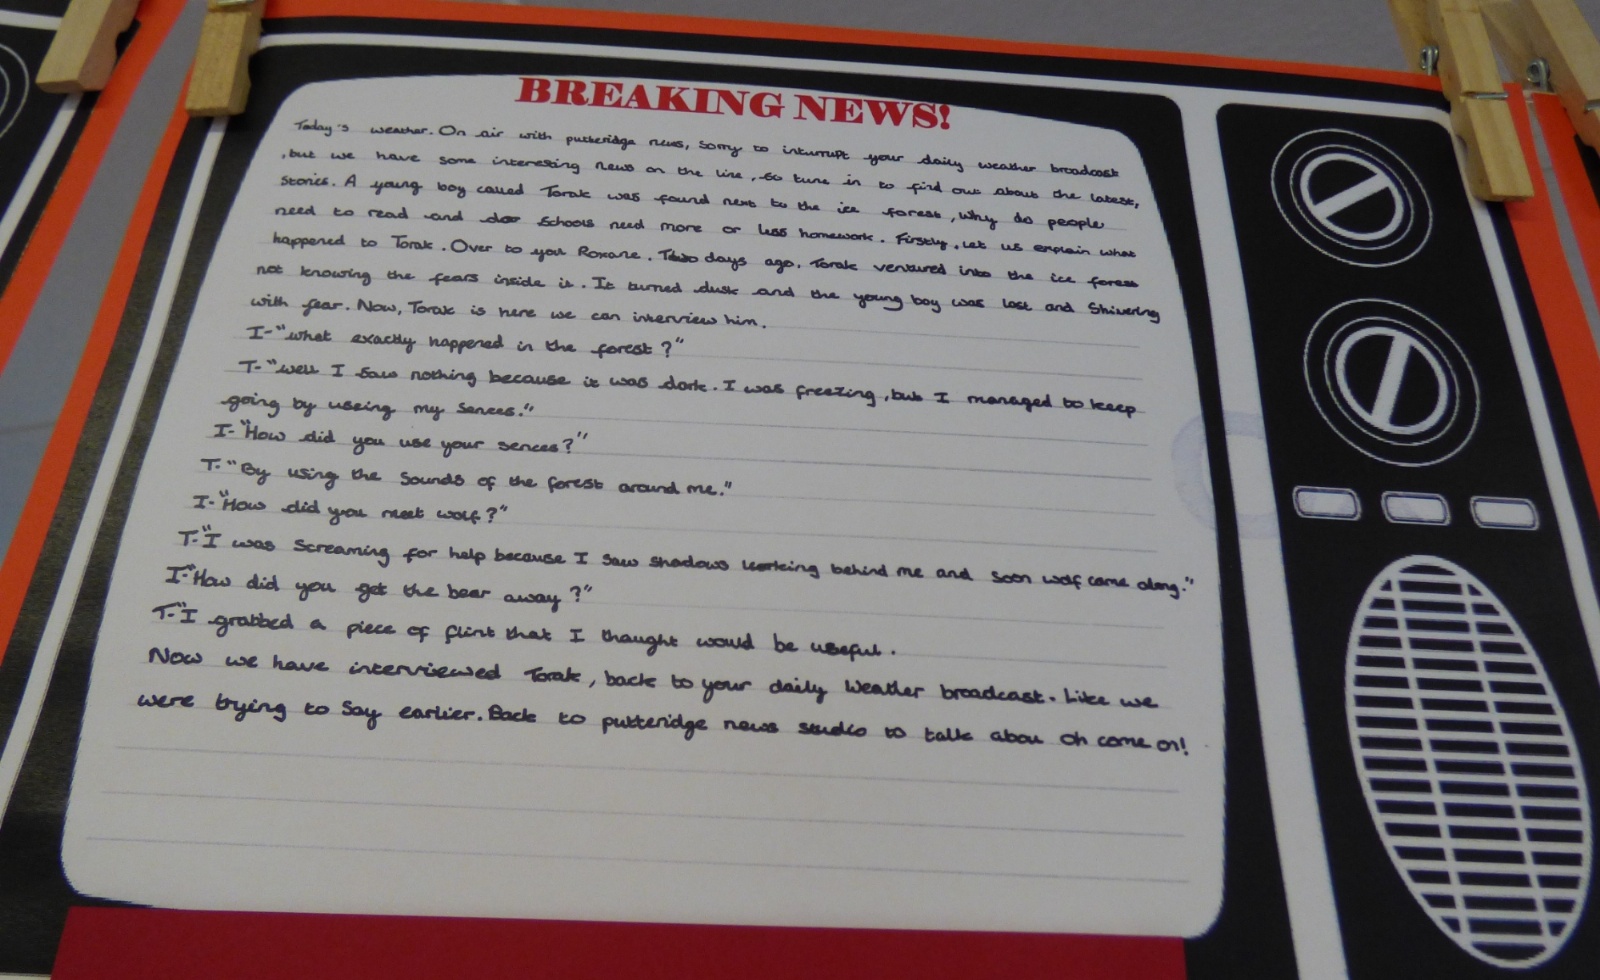 BREAKING NEWS!
Today's weather. On air with putteridge news, Sorry to interrupt your daily weather broadcast
, but we have some interesting news on the line, so tune in to find out about the latest,
stories. A young boy called Torak was found next to the ice forest, Why do people
need to read and do schools need more or less homework. Firstly, let us explain what
happened to Torak. Over to you Roxane. Two days ago, Torak ventured into the ice forest
not knowing the fears inside it. It turned dusk and the young boy was lost and Shivering
with fear. Now, Torak is here we can interview him.
I-"what exactly happened in the forest?"
T-"well I saw nothing because it was dark. I was freezing, but I managed to keep
going by useing my sences."
I-"How did you use your sences?"
T-"By using the sounds of the forest around me."
I-"How did you meet wolf?"
T-"I was Screaming for help because I saw shadows lurking behind me and soon wolf came along."
I-"How did you get the bear away?"
T-"I grabbed a piece of flint that I thought would be useful.
Now we have interviewed Torak, back to your daily Weather broadcast. Like we
were trying to Say earlier. Back to putteridge news studio to talk abou Oh come on!